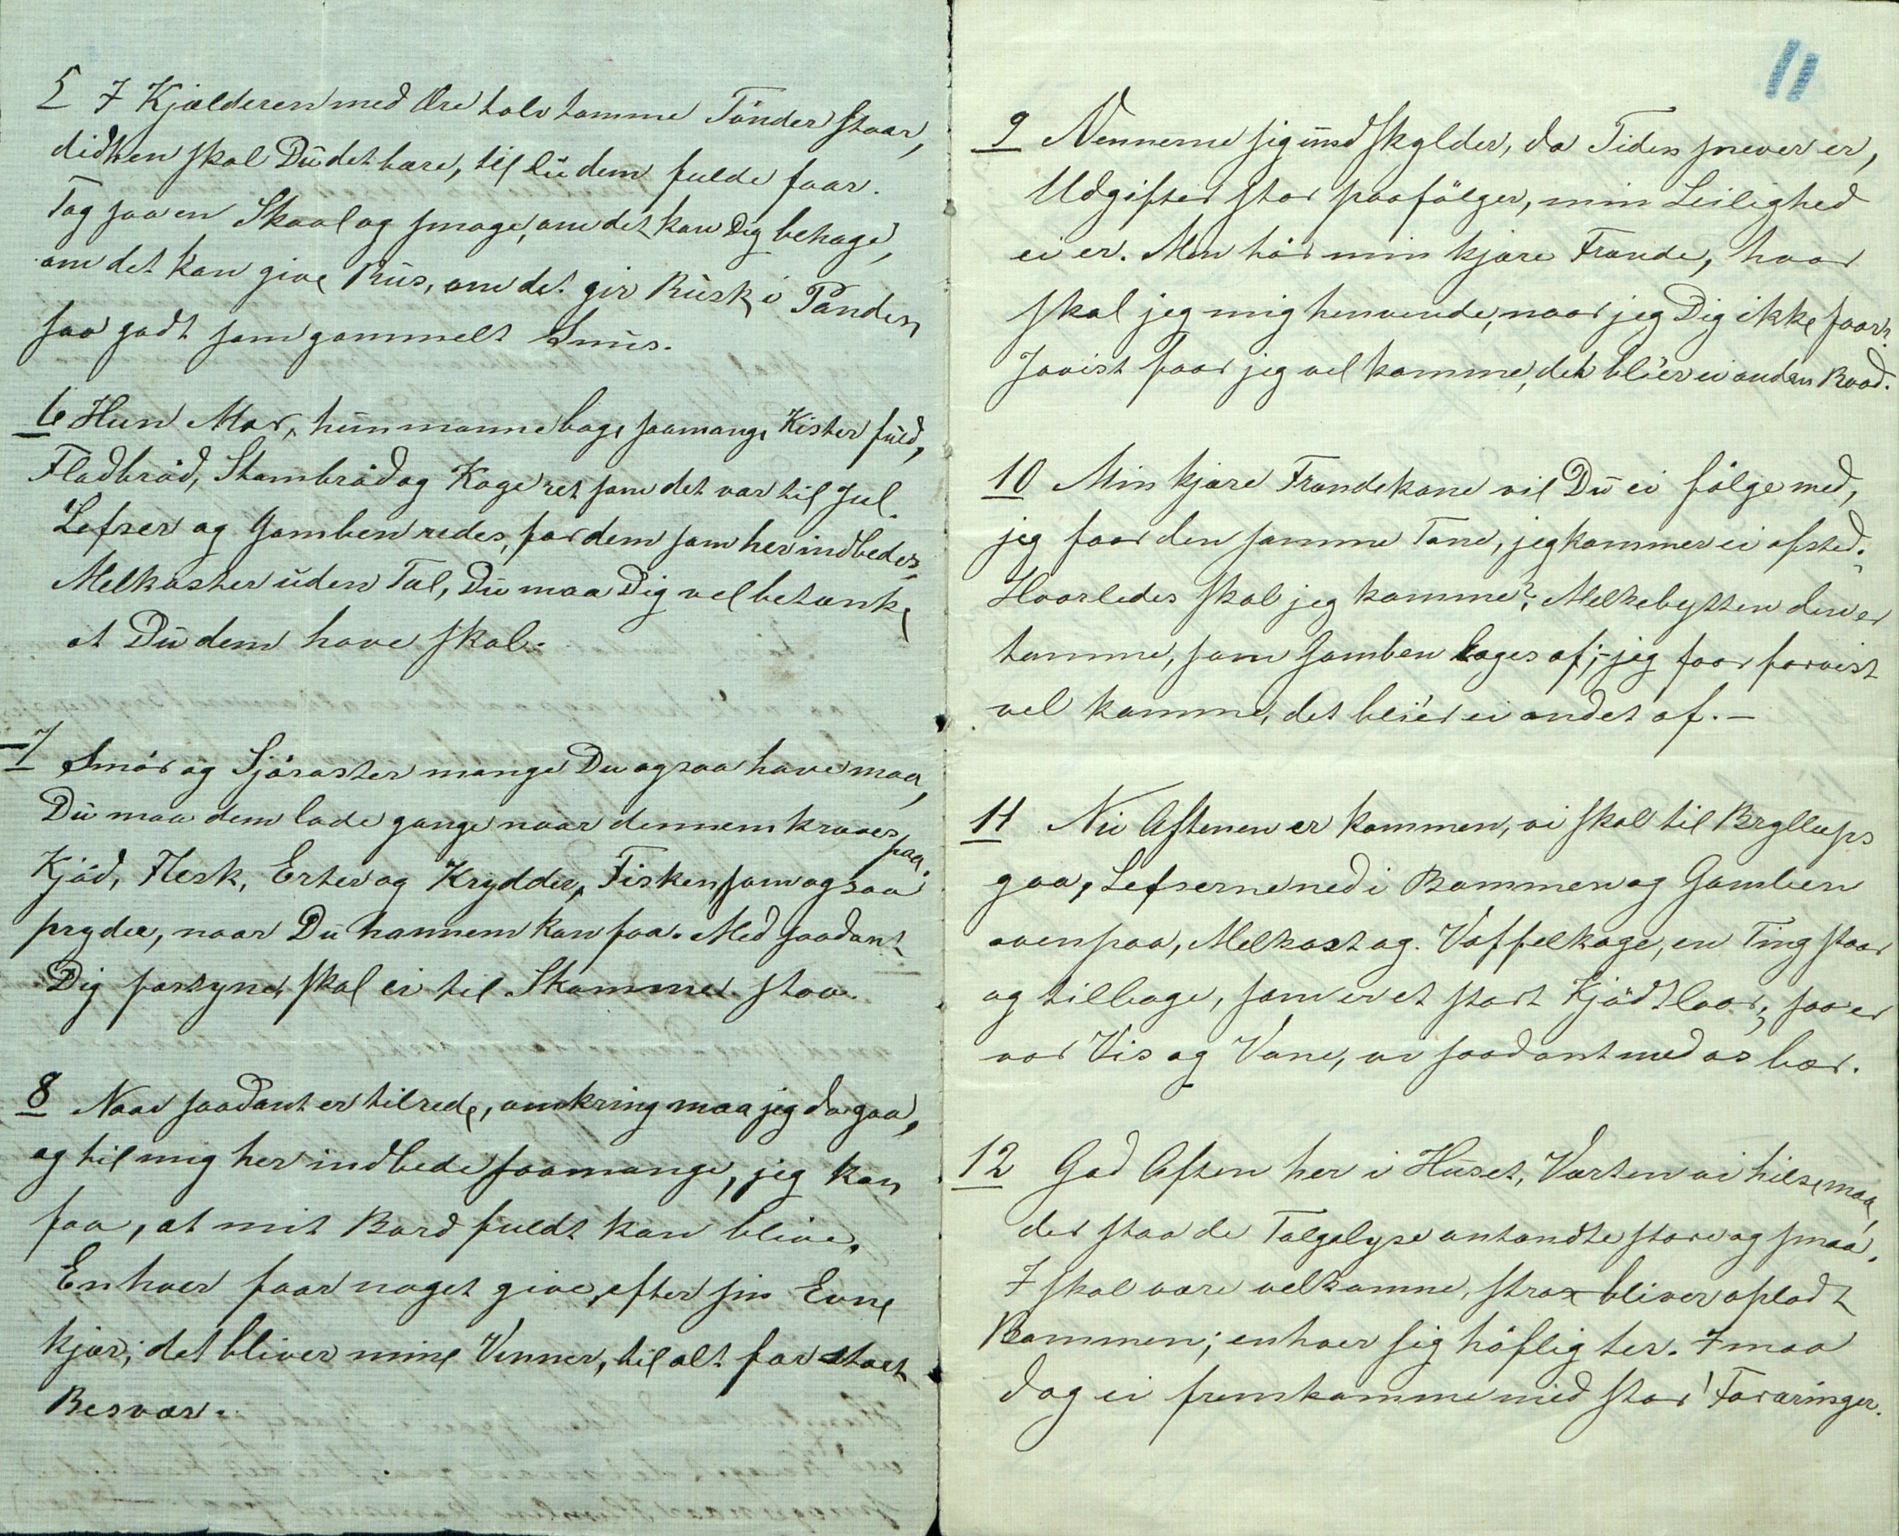 5 I Kjælderen med Øre tolv tomme Tönder staar,
didhen skal Dŭ det bære, til lŭ dem fulde faar.
Tag saa en Skaal og smage, om det kan Dig behage,
om det kan give Rŭs, om det gir Rŭsk i Panden
saa godt som gammelt Snŭs.
6 Hun Mor, hŭn monne bage saamange Kister fŭld,
Fladbröd, Stombröd og Kage ret som det var til Jul.
Lefser og Gomben redes, for dem som her indbedes,
Melkoster ŭden Tal, Dŭ maa Dig vel betænke
at Dŭ dem have skal.
7 Smör og Sjöroster mange Du ogsaa have maa,
Dŭ maa dem lade gange naar dennem kræves paa.
Kjöd, Flesk, Erter og Krydder, Fisken som ogsaa
pryder, naar Dŭ hannem kan faa. Med saadant
Dig forsyne, skal ei til Skamme staa.
8 Naar saadant er tilrede, omkring maa jeg da gaa,
og til mig her indbede saamange, jeg kan
faa, at mit Bord fuldt kan blive,
Enhver faar noget give, efter sin Evne
kjær, det bliver mine Venner, til alt for stort
Besvær.
11
9 Vennerne sig ŭndskylder, da Tiden snever er,
Udgifter stor paafölger, min Leilighed
ei er. Men hör min kjære Frænde, hvor
skal jeg mig henvende, naar jeg Dig ikke faar?
Javist faar jeg vel komme, det bli'er ei anden Raad.
10 Min kjære Frændekone vil Dŭ ei fölge med,
jeg faar den samme Tone, jeg kommer ei afsted.
Hvorledes skal jeg komme? Melkebytten den er
tomme, som Gomben lages af; - jeg faar forvist
vel komme, det bli'er ei andet af. -
11 Nŭ Aftenen er kommen, vi skal til Bryllups
gaa, Lefserne ned i Bommen og Gomben
ovenpaa, Melkost og Vaffelkage, en Ting staar
og tilbage, som er et stort Kjödtlaar, saa er
vor Vis og Vane, vi saadant med os bær.
12 God Aften her i Hŭset, Værten vi hilse maa,
der staa de Talgelyse antændte store og smaa.
I skal være velkomne, strax bliver opladt
Bommen; enhver sig höflig ter. I maa
dog ei fremkomme med stor' Foræringer.